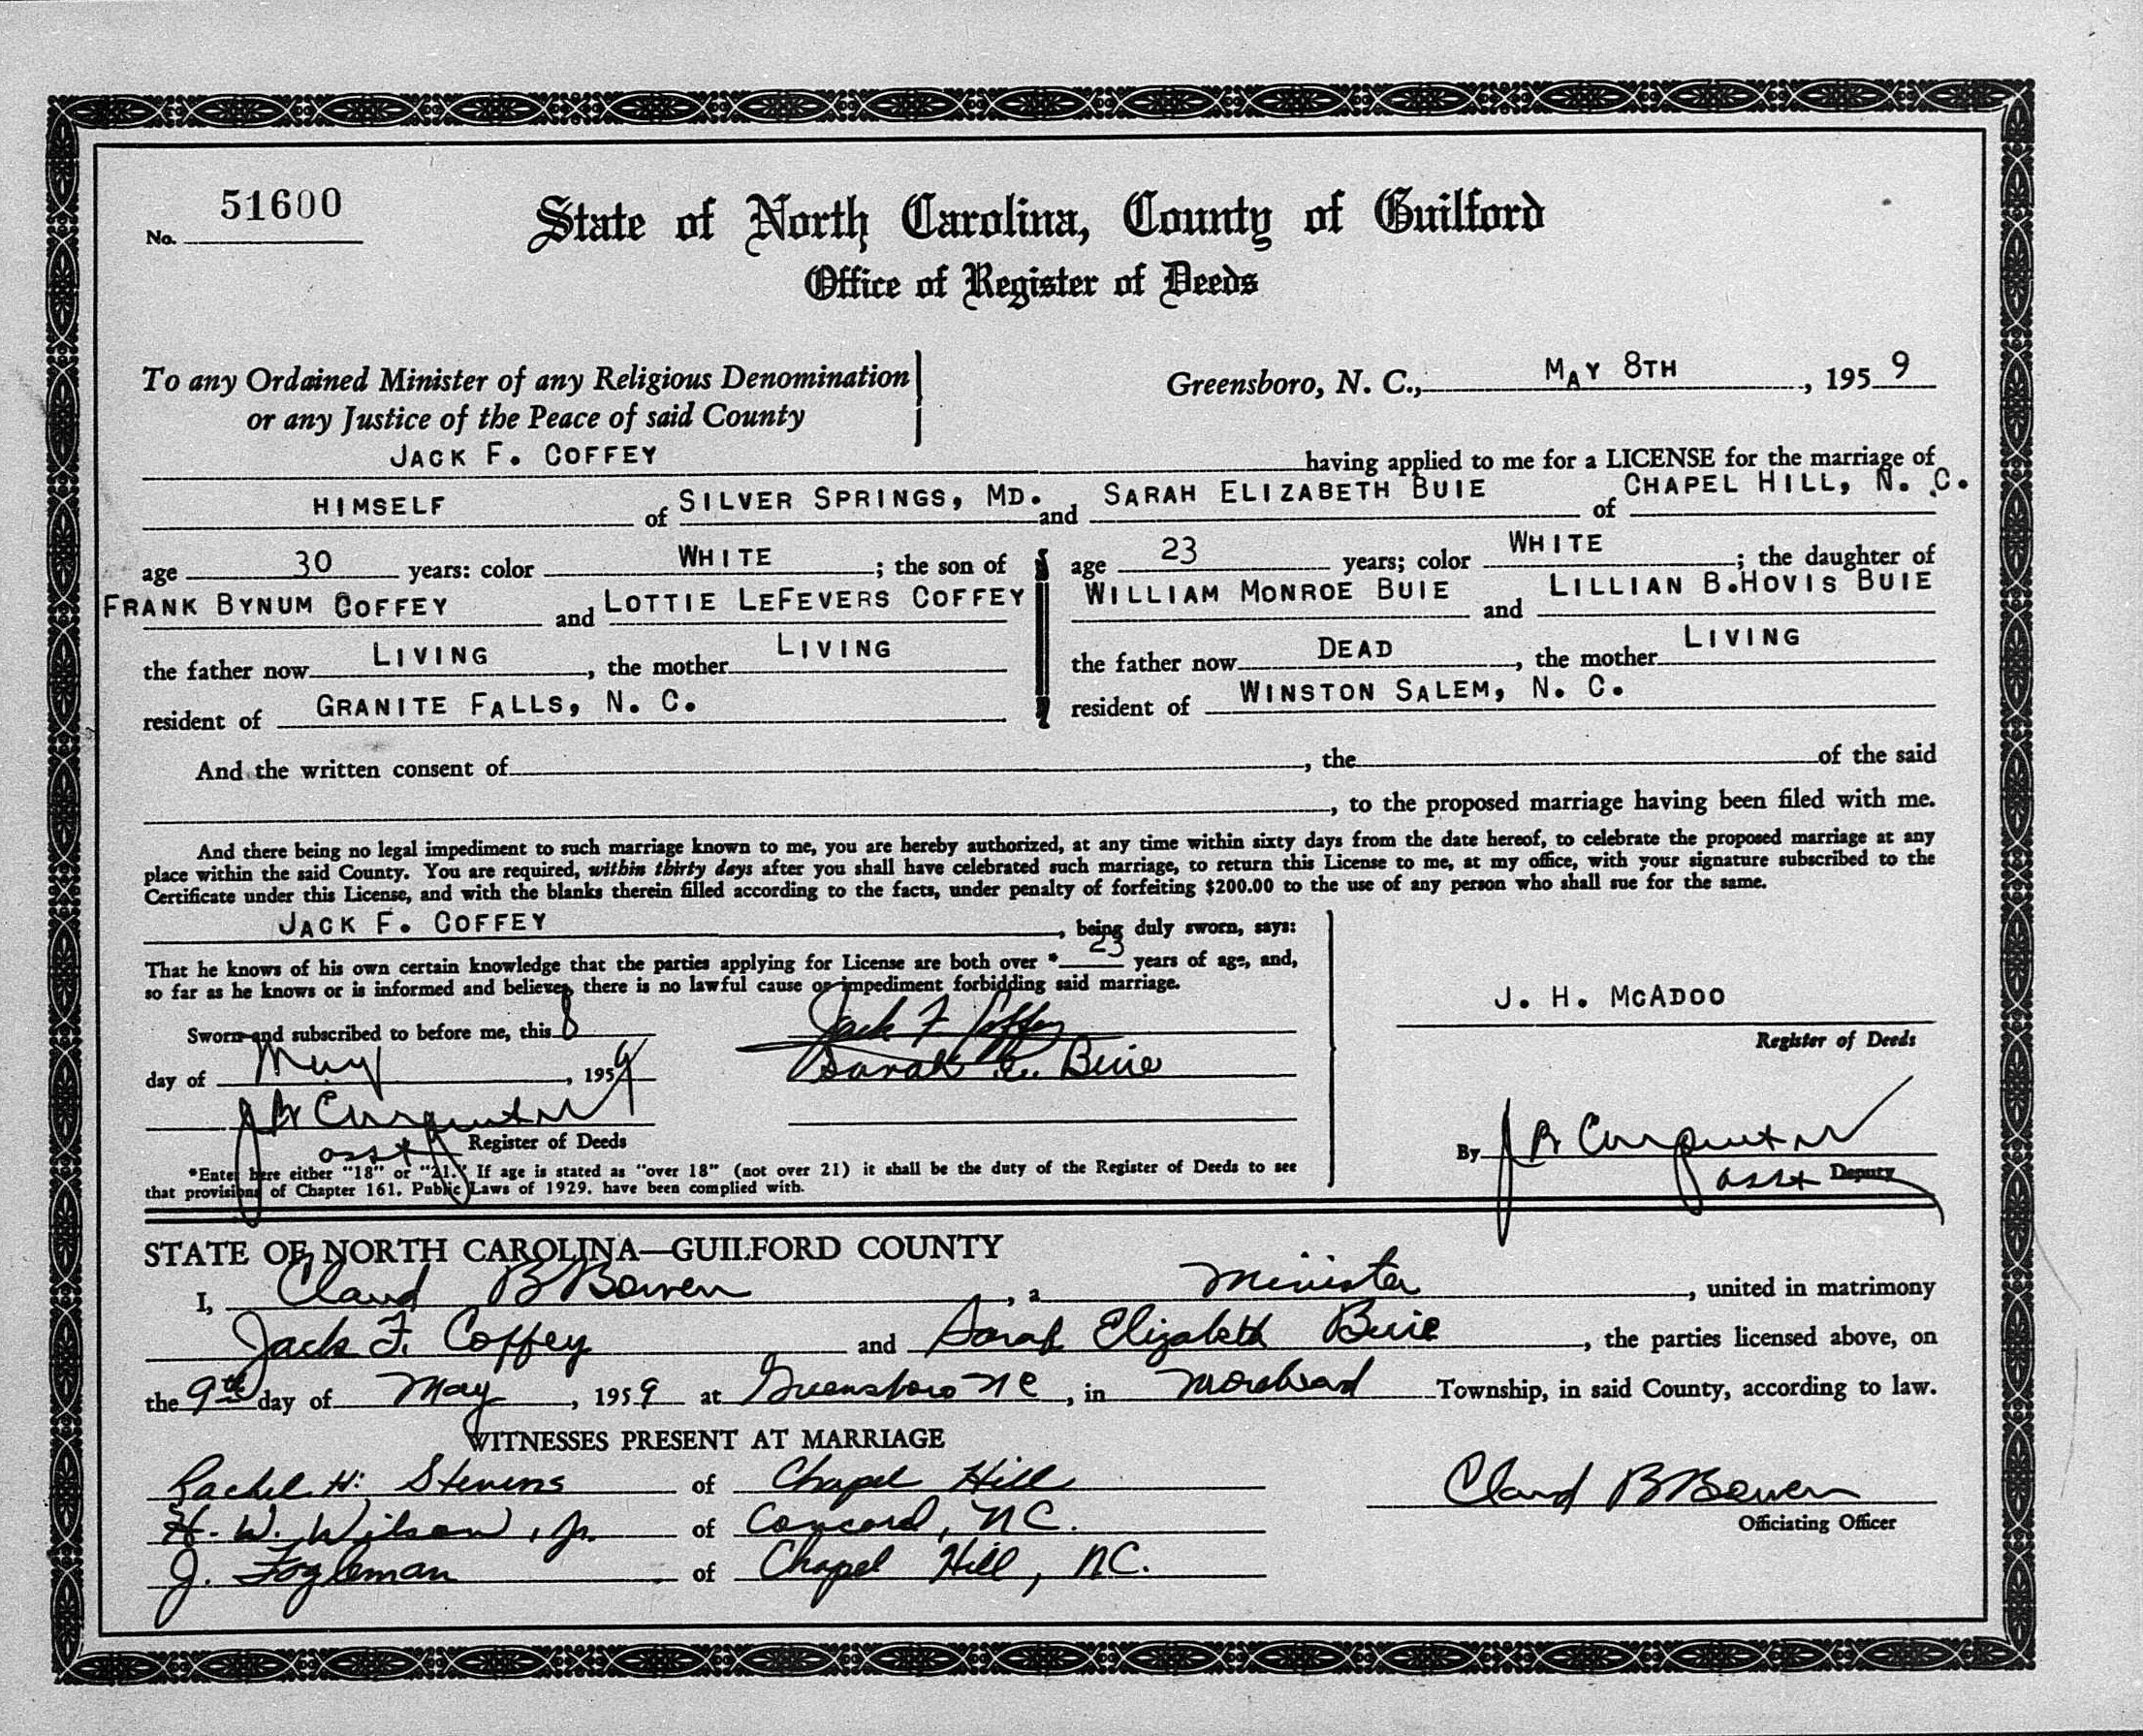 No. 51600
State of North Carolina, County of Guilford
Office of Register of Deeds
To any Ordained Minister of any Religious Denomination
or any Justice of the Peace of said County
Greensboro, N. C., MAY 8TH, 1959
JACK F. COFFEY having applied to me for a LICENSE for the marriage of
HIMSELF of SILVER SPRINGS, MD. and SARAH ELIZABETH BUIE of CHAPEL HILL, N. C.
age 30 years: color WHITE; the son of
FRANK BYNUM COFFEY and LOTTIE LEFEVERS COFFEY
the father now LIVING, the mother LIVING
resident of GRANITE FALLS, N. C.
age 23 years; color WHITE; the daughter of
WILLIAM MONROE BUIE and LILLIAN B.HOVIS BUIE
the father now DEAD, the mother LIVING
resident of WINSTON SALEM, N. C.
And the written consent of, the of the said
, to the proposed marriage having been filed with me.
And there being no legal impediment to such marriage known to me, you are hereby authorized, at any time within sixty days from the date hereof, to celebrate the proposed marriage at any
place within the said County. You are required, within thirty days after you shall have celebrated such marriage, to return this License to me, at my office, with your signature subscribed to the
Certificate under this License, and with the blanks therein filled according to the facts, under penalty of forfeiting $200.00 to the use of any person who shall sue for the same.
JACK F. COFFEY, being duly sworn, says:
That he knows of his own certain knowledge that the parties applying for License are both over * 23 years of age, and,
so far as he knows or is informed and believes, there is no lawful cause or impediment forbidding said marriage.
Sworn and subscribed to before me, this 8
day of May, 1959
J B Carpenter
asst Register of Deeds
Jack F Coffey
Sarah E. Buie
*Enter here either "18" or "21." If age is stated as "over 18" (not over 21) it shall be the duty of the Register of Deeds to see
that provisions of Chapter 161, Public Laws of 1929, have been complied with.
J. H. MCADOO
Register of Deeds
By J B Carpenter
asst Deputy
STATE OF NORTH CAROLINA—GUILFORD COUNTY
I, Claud B Bowen, a Minister, united in matrimony
Jack F. Coffey and Sarah Elizabeth Buie, the parties licensed above, on
the 9th day of May, 1959 at Greensboro NC, in Morehead Township, in said County, according to law.
WITNESSES PRESENT AT MARRIAGE
Rachel H. Stevens of Chapel Hill
H. W. Wilson, Jr. of Concord, NC.
J. Fogleman of Chapel Hill, NC.
Claud B Bowen
Officiating Officer